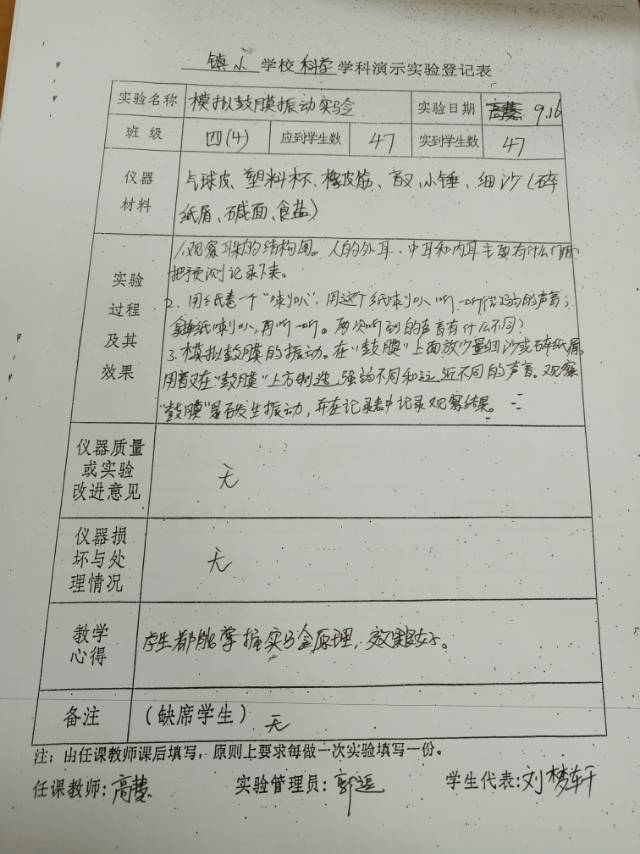 镇小学校科学学科演示实验登记表
实验名称 模拟鼓膜振动实验 实验日期 9.16
班级 四(4) 应到学生数 47 实到学生数 47
仪器材料 气球皮、塑料杯、橡皮筋、音叉、小锤、细沙(碎
纸屑、碱面、食盐)
实验过程及其效果
1.观察耳朵的结构图。人的外耳、中耳和内耳主要有什么作用
把预测记录下来。
2.用纸卷一个“喇叭”,用这个纸喇叭听一听微弱的声音;
拿掉纸喇叭,再听一听。两次听到的声音有什么不同?
3.模拟鼓膜的振动。在“鼓膜”上面放少量细沙或碎纸屑,
用音叉在“鼓膜”上方制造强弱不同和远近不同的声音。观察
“鼓膜”是否发生振动,并在记录表中记录观察结果。
仪器质量或实验改进意见 无
仪器损坏与处理情况 无
教学心得 学生都能掌握实验原理,效果较好。
备注 (缺席学生) 无
注:由任课教师课后填写,原则上要求每做一次实验填写一份。
任课教师:高慧 实验管理员:郭遥 学生代表:刘梦轩